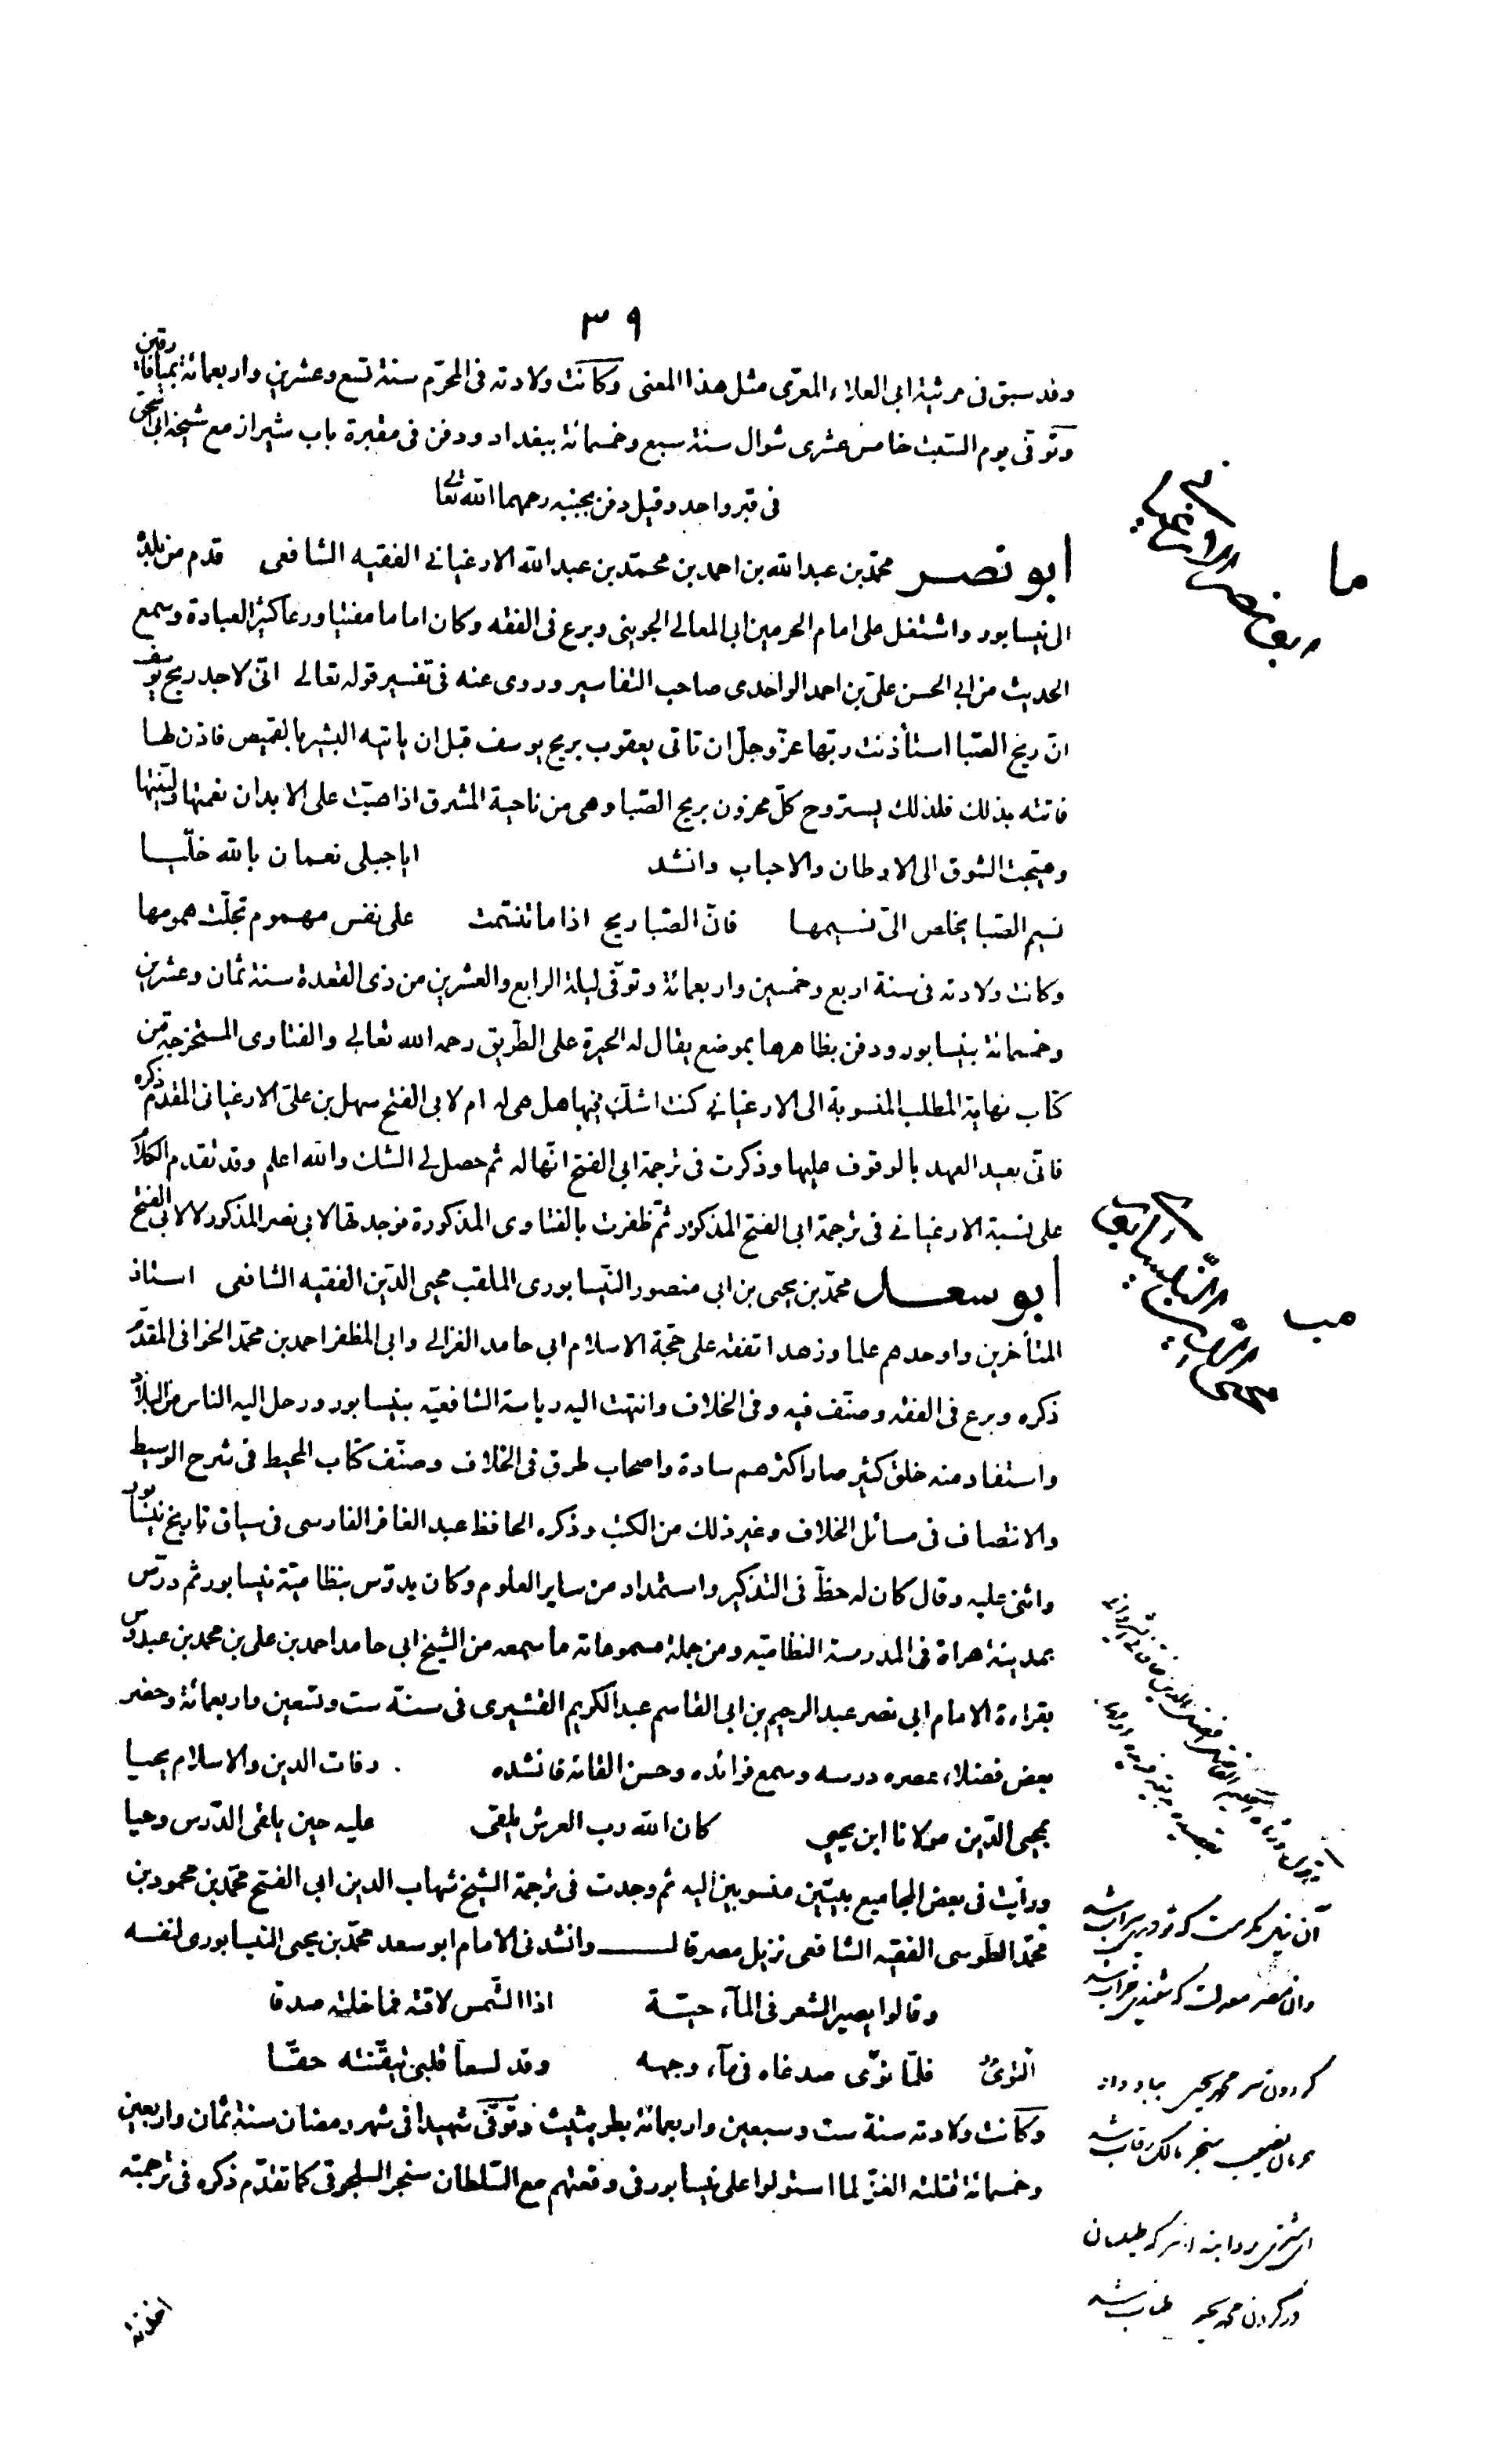 ٣٩
وقد سبق فى مرثية ابى العلاء المعرّى مثل هذا المعنى وكانت ولادته فى المحرّم سنة تسع وعشرين واربعمائة بميافارقين
وتوفّى يوم السّبت خامس عشرى شوال سنة سبع وخمسمائة ببغداد ودفن فى مقبرة باب شيراز مع شيخه ابى اسحق
فى قبر واحد وقيل دفن بجنبه رحمهما الله تعالى
ما
أبو نصر محمّد بن عبد الله بن احمد بن محمّد بن عبد الله الارغيانى الفقيه الشافعى قدم من بلده
الى نيسابور واشتغل على امام الحرمين ابى المعالى الجوينى وبرع فى الفقه وكان اماما مفتيا ورعا كثير العبادة وسمع
الحديث من ابى الحسن علىّ بن احمد الواحدى صاحب التفاسير وروى عنه فى تفسير قوله تعالى انّى لاجد ريح يوسف
انّ ريح الصّبا استأذنت ربّها عزّ وجلّ ان تاتى يعقوب بريح يوسف قبل ان ياتيه البشير بالقميص فاذن لها
فاتته بذلك فلذلك يستروح كلّ محزون بريح الصّبا وهى من ناحية المشرق اذا هبّت على الابدان نعمتها وليّنتها
وهيّجت الشوق الى الاوطان والاحباب وانشد ايا جبلى نعمان بالله خلّيا
نسيم الصّبا يخلص الىّ نسيمها فانّ الصّبا ريح اذا ما تنسّمت على نفس مهموم تجلّت همومها
وكانت ولادته فى سنة اربع وخمسين واربعمائة وتوفّى ليلة الرابع والعشرين من ذى القعدة سنة ثمان وعشرين
وخمسمائة بنيسابور ودفن بظاهرها بموضع يقال له الحيرة على الطّريق رحمه الله تعالى والفتاوى المستخرجة من
كتاب نهاية المطلب المنسوبة الى الارغيانى كنت اشكّ فيها هل هى له ام لابى الفتح سهل بن علىّ الارغيانى المقدّم ذكره
فانّى بعيد العهد بالوقوف عليها وذكرت فى ترجمة ابى الفتح انّها له ثم حصل لى الشك والله اعلم وقد تقدم الكلام
على نسبة الارغيانى فى ترجمة ابى الفتح المذكور ثمّ ظفرت بالفتاوى المذكورة فوجدتها لابى نصر المذكور لا لابى الفتح
مب
أبو سعد محمّد بن يحيى بن ابى منصور النّيسابورى الملقب محيى الدّين الفقيه الشافعى استاذ
المتأخرين واوحدهم علما وزهدا تفقه على حجّة الاسلام ابى حامد الغزالى وابى المظفر احمد بن محمّد الخوافى المقدّم
ذكره وبرع فى الفقه وصنّف فيه وفى الخلاف وانتهت اليه رياسة الشافعيّة بنيسابور ورحل اليه الناس من البلاد
واستفاد منه خلق كثير صار اكثرهم سادة واصحاب طرق فى الخلاف وصنّف كتاب المحيط فى شرح الوسيط
والانتصاف فى مسائل الخلاف وغير ذلك من الكتب وذكره الحافظ عبد الغافر الفارسى فى سياق تاريخ نيسابور
واثنى عليه وقال كان له حظّ فى التذكير واستمداد من ساير العلوم وكان يدرّس بنظاميّة نيسابور ثم درّس
بمدينة هراة فى المدرسة النظاميّه ومن جملة مسموعاته ما سمعه من الشيخ ابى حامد احمد بن على بن محمد بن عبدوس
بقراءة الامام ابى نصر عبد الرحيم بن ابى القاسم عبد الكريم القشيرى فى سنة ست وتسعين واربعمائة وحضر
بعض فضلاء عصره درسه وسمع فوائده وحسن القائه فانشده رفات الدين والاسلام يحيا
بمحيى الدّين مولانا ابن يحيى كان الله رب العرش يلقى عليه حين يلقى الدّرس وحيا
ورأيت فى بعض المجاميع بيتين منسوبين اليه ثم وجدت فى ترجمة الشيخ شهاب الدين ابى الفتح محمّد بن محمود بن
محمّد الطّوسى الفقيه الشافعى نزيل مصر قال وانشدنى الامام ابو سعد محمّد بن يحيى النيسابورى لنفسه
وقالوا يصير الشعر فى المآء حيّة اذا الشّمس لاقته فما خلته صدقا
فلمّا توّى صدغاه فى مآء وجهه وقد لسعا قلبى تيقّنته حقّا
وكانت ولادته سنة ست وسبعين واربعمائة بطريثيث وتوفّى شهيدا فى شهر رمضان سنة ثمان واربعين
وخمسمائة قتلته الغزّ لما استولوا على نيسابور فى وقعتهم مع السّلطان سنجر السلجوقى كما تقدّم ذكره فى ترجمته
كه تو ديدى سراب شد
گردون سر محمد يحيى بباد داد
نصيب سنجر مالك رقاب شد